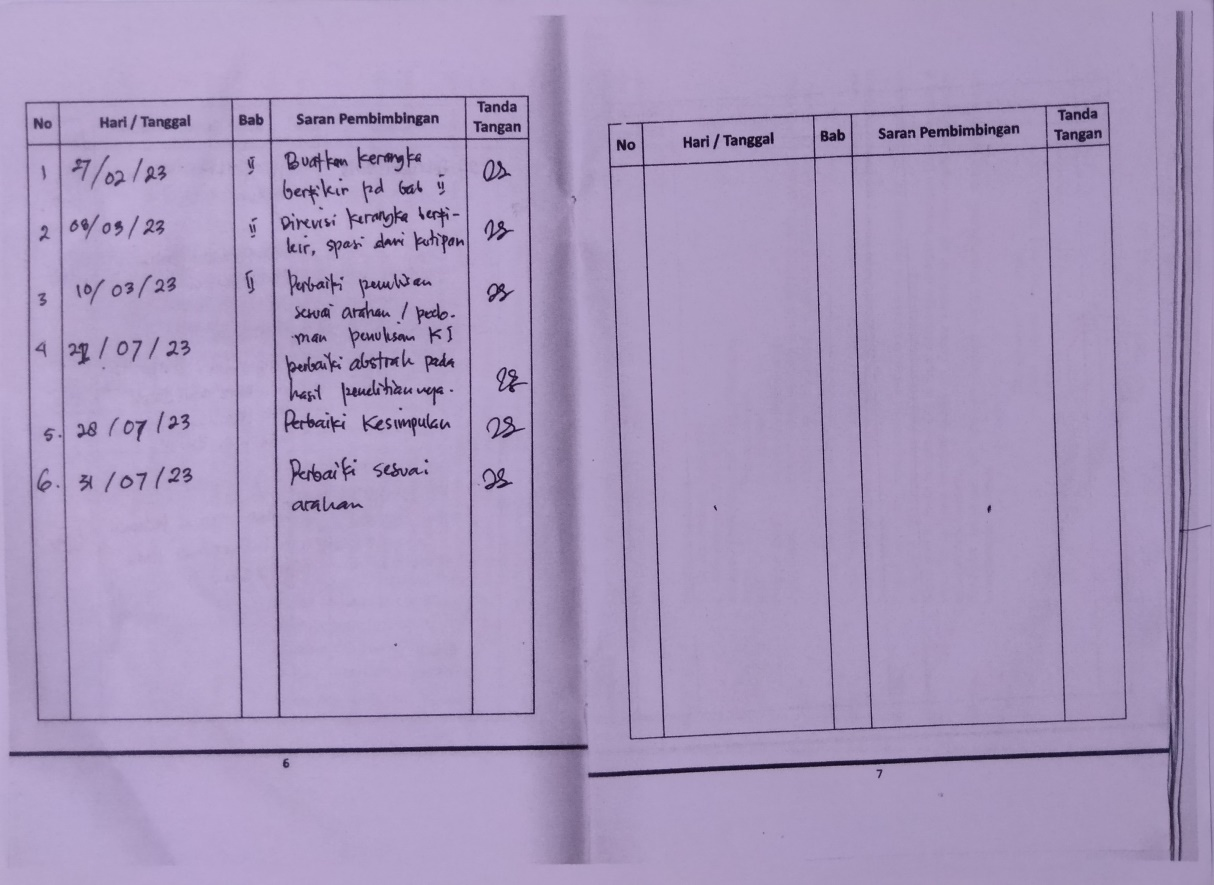 No Hari / Tanggal Bab Saran Pembimbingan Tanda Tangan
1 27/02/23 II Buatkan kerangka
berfikir pd bab II
2 08/03/23 II Direvisi kerangka berfi-
kir, spasi dari kutipan
3 10/03/23 II Perbaiki penulisan
sesuai arahan / pedo-
man penulisan KI
4 /07/23 perbaiki abstrak pada
hasil penelitiannya.
5. 28/07/23 Perbaiki Kesimpulan
6. 31/07/23 Perbaiki sesuai
arahan
6
No Hari / Tanggal Bab Saran Pembimbingan Tanda Tangan
7